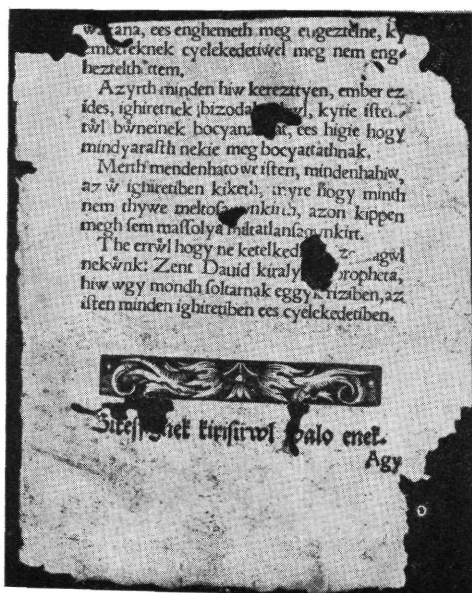 ees enghemeth meg eugeztelne, ky
embereknek cyelekedetiwel meg nem eng⸗
heztelthettem.
Azyrth minden hiw kerezttyen, ember ez
ides, ighiretnek kyrie iſten⸗
twl bwneinek ees higie hogy
mindyaraſth nekie meg bocyattathnak.
Merth mendenhatowr iſten, mindenhahiw,
az w̋ ighiretiben kiketh, myre hogy minth
nem thywe azon kippen
megh ſem maſſolya
The errwl hogy ne
nekwnk: Zent Dauid kiraly propheta,
hiw wgy mondh ſoltarnak eggyk riziben, az
iſten minden ighiretiben ees cyelekedetiben.
kiriſirwl walo enek.
Agy